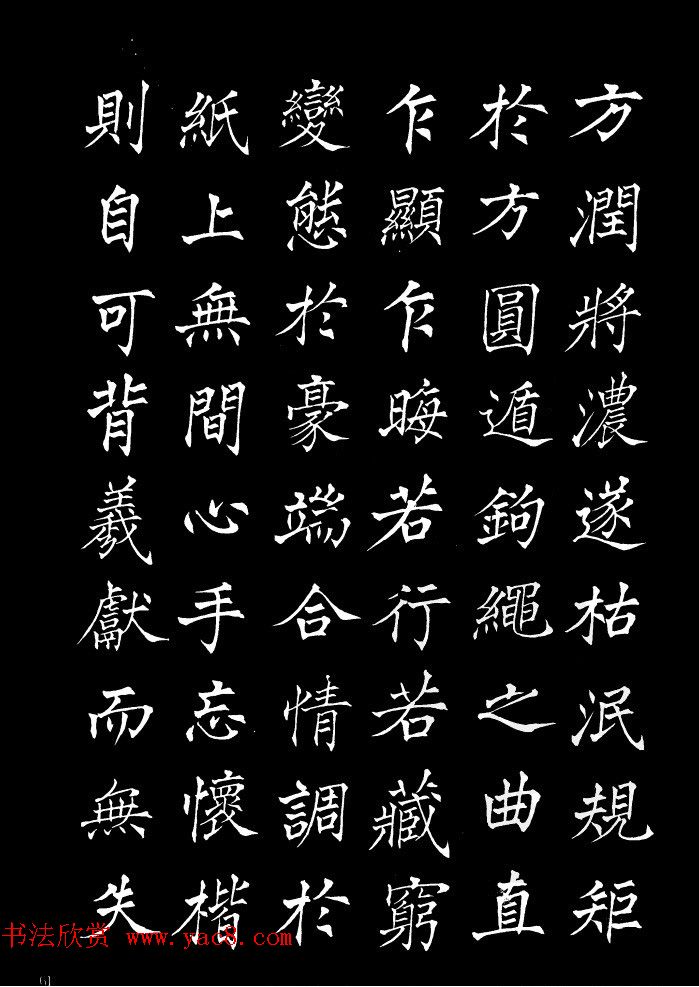 方潤將濃遂枯泯規矩
於方圓遁鉤繩之曲直
乍顯乍晦若行若藏窮
變態於豪端合情調於
紙上無間心手忘懷楷
則自可背羲獻而無失
书法欣赏 www.yac8.com
61